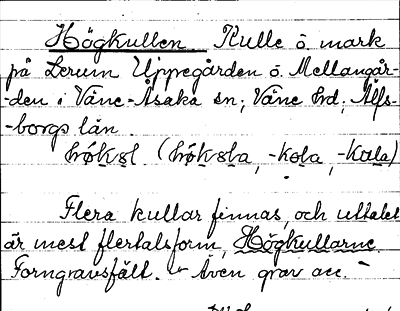 Högkullen. Kulle ö. mark
på Lerum Uppegården ö. Mellangår-
-den i Väne-Åsaka sn; Väne hd; Älfs-
-borgs län.
Flera kullar finnas, och uttalet
är mest flertalsform, Högkullarne.
Forngravsfält. – Även grav